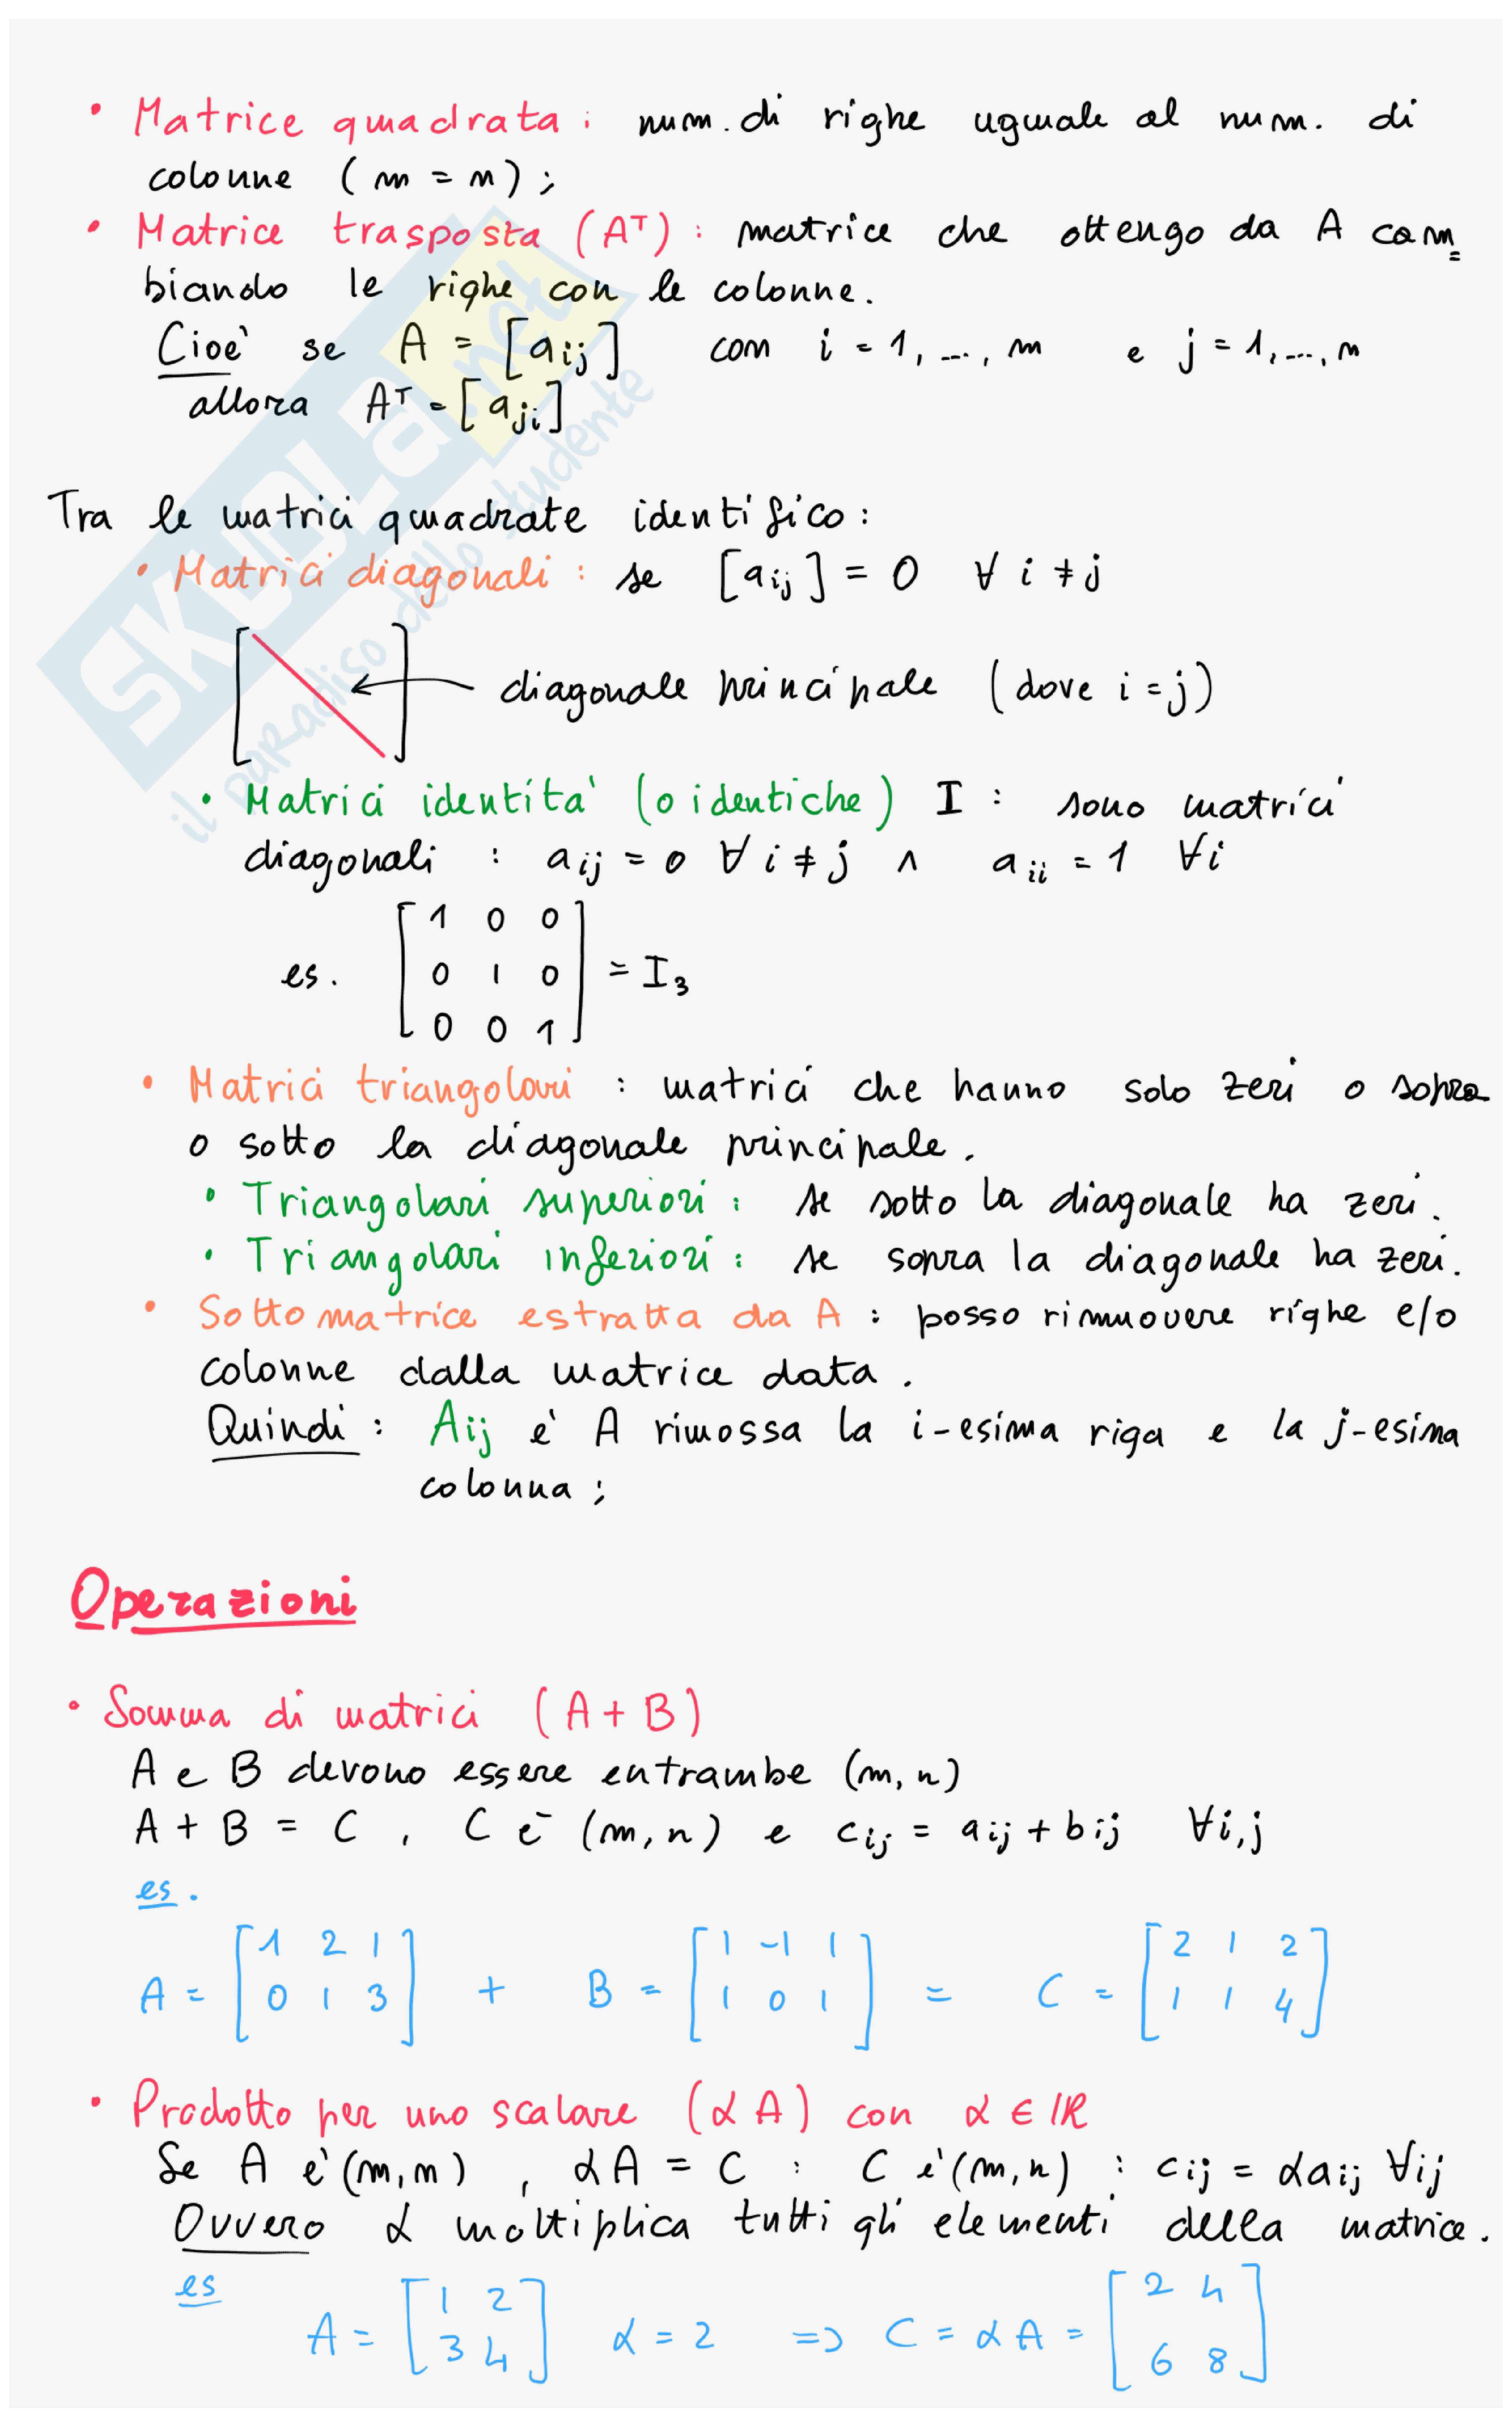 • Matrice quadrata: num. di righe uguale al num. di
colonne (m = n);
• Matrice trasposta (Aᵀ): matrice che ottengo da A cam=
biando le righe con le colonne.
Cioè se A = [aij] con i = 1, ..., m e j = 1, ..., n
allora Aᵀ = [aji]
Tra le matrici quadrate identifico:
• Matrici diagonali: se [aij] = 0 ∀ i ≠ j
diagonale principale (dove i = j)
• Matrici identità (o identiche) I: sono matrici
diagonali : aij = 0 ∀ i ≠ j ∧ aii = 1 ∀i
1 0 0
es. 0 1 0 = I3
0 0 1
• Matrici triangolari: matrici che hanno solo zeri o sopra
o sotto la diagonale principale.
• Triangolari superiori: se sotto la diagonale ha zeri.
• Triangolari inferiori: se sopra la diagonale ha zeri.
• Sottomatrice estratta da A: posso rimuovere righe e/o
colonne dalla matrice data.
Quindi: Aij è A rimossa la i-esima riga e la j-esima
colonna;
Operazioni
• Somma di matrici (A + B)
A e B devono essere entrambe (m, n)
A + B = C, C è (m, n) e cij = aij + bij ∀i,j
es.
A = [1 2 1 / 0 1 3] + B = [1 -1 1 / 1 0 1] = C = [2 1 2 / 1 1 4]
• Prodotto per uno scalare (αA) con α ∈ ℝ
Se A è (m, n), αA = C : C è (m, n) : cij = αaij ∀ij
Ovvero α moltiplica tutti gli elementi della matrice.
es
A = [1 2 / 3 4] α = 2 => C = αA = [2 4 / 6 8]
SKUOLA.net
il paradiso dello studente